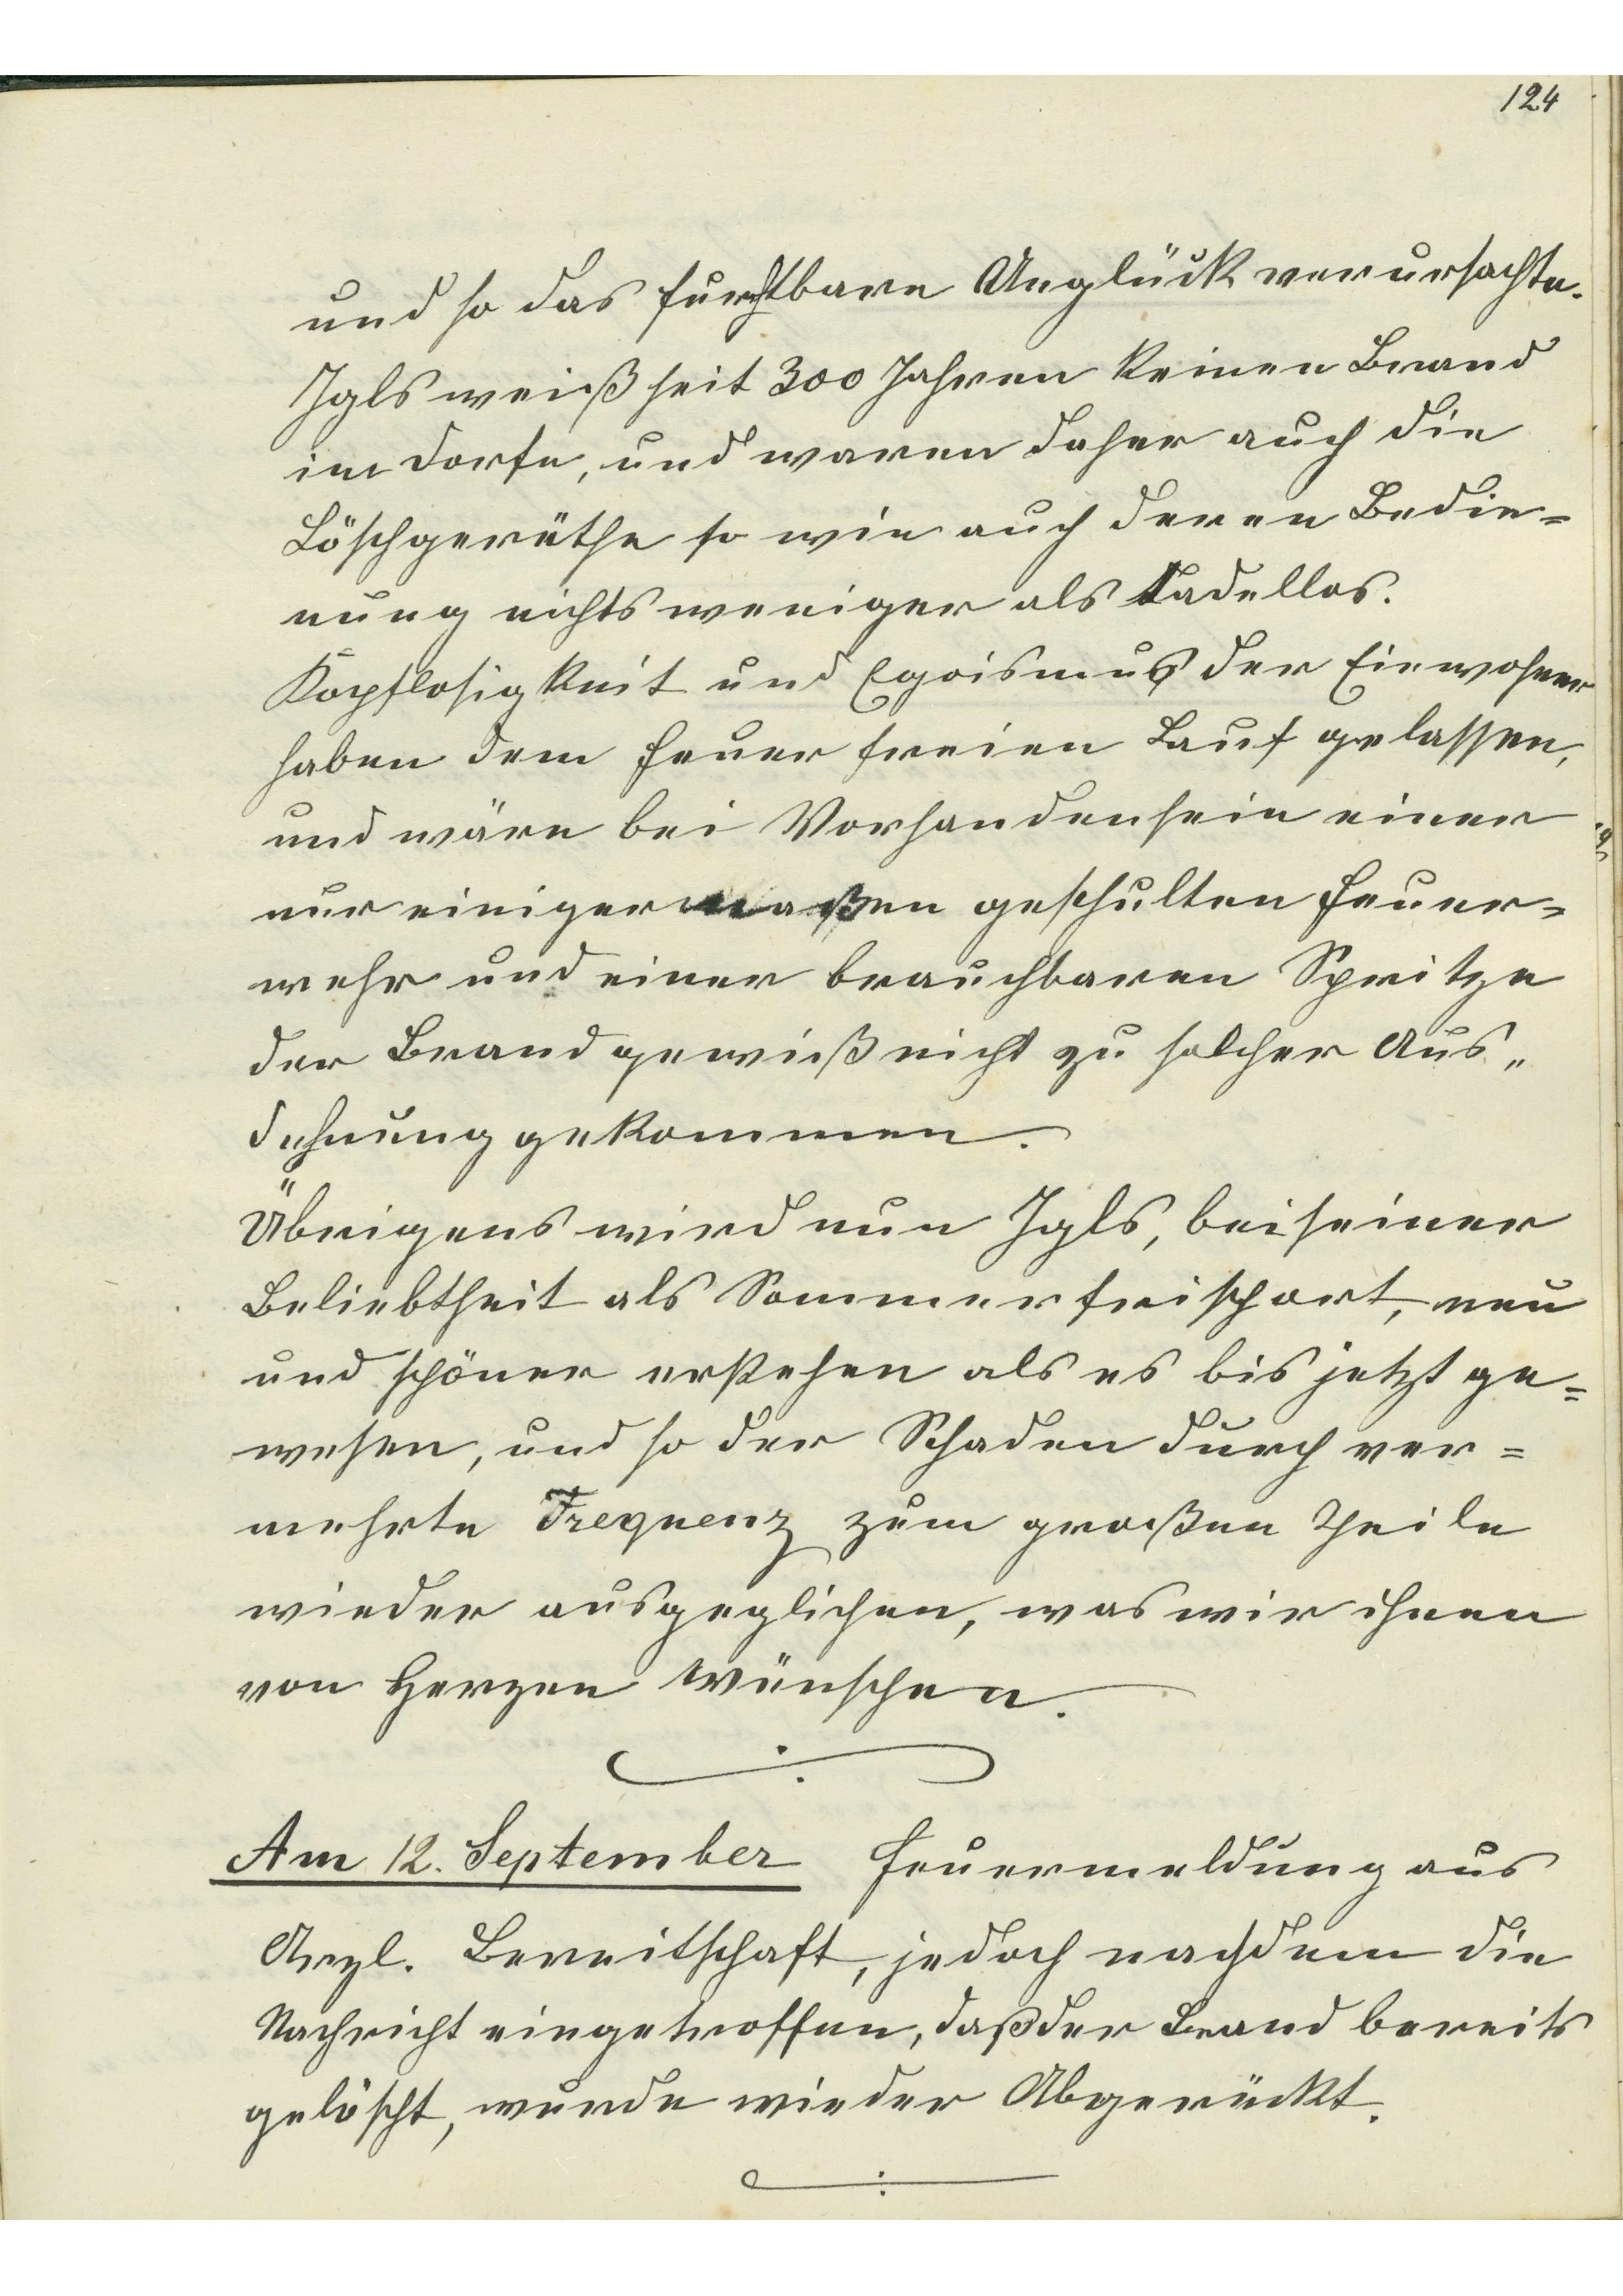 124
und so das furchtbare Unglück verursachte.
Igls weiß seit 300 Jahren keinen Brand
im Dorfe, und waren daher auch die
Löschgeräthe so wie auch deren Bedie=
nung nichts weniger als tadellos.
Kopflosigkeit und Egoismus der Einwohner
haben dem Feuer freien Lauf gelassen,
und wäre bei Vorhandensein einer
nur einigermaßen geschulten Feuer=
wehr und einer brauchbaren Spritze
der Brand gewiß nicht zu solcher Aus„
dehnung gekommen.
Übrigens wird nun Igls, bei seiner
Beliebtheit als Sommerfrischort, neu
und schöner erstehen als es bis jetzt ge=
wesen, und so der Schaden durch ver=
mehrte Frequenz zum großen Theile
wieder ausgeglichen, was wir ihnen
von Herzen wünschen.
Am 12. September Feuermeldung aus
Arzl. Bereitschaft, jedoch nachdem die
Nachricht eingetroffen, daß der Brand bereits
gelöscht, wurde wieder Abgerückt.